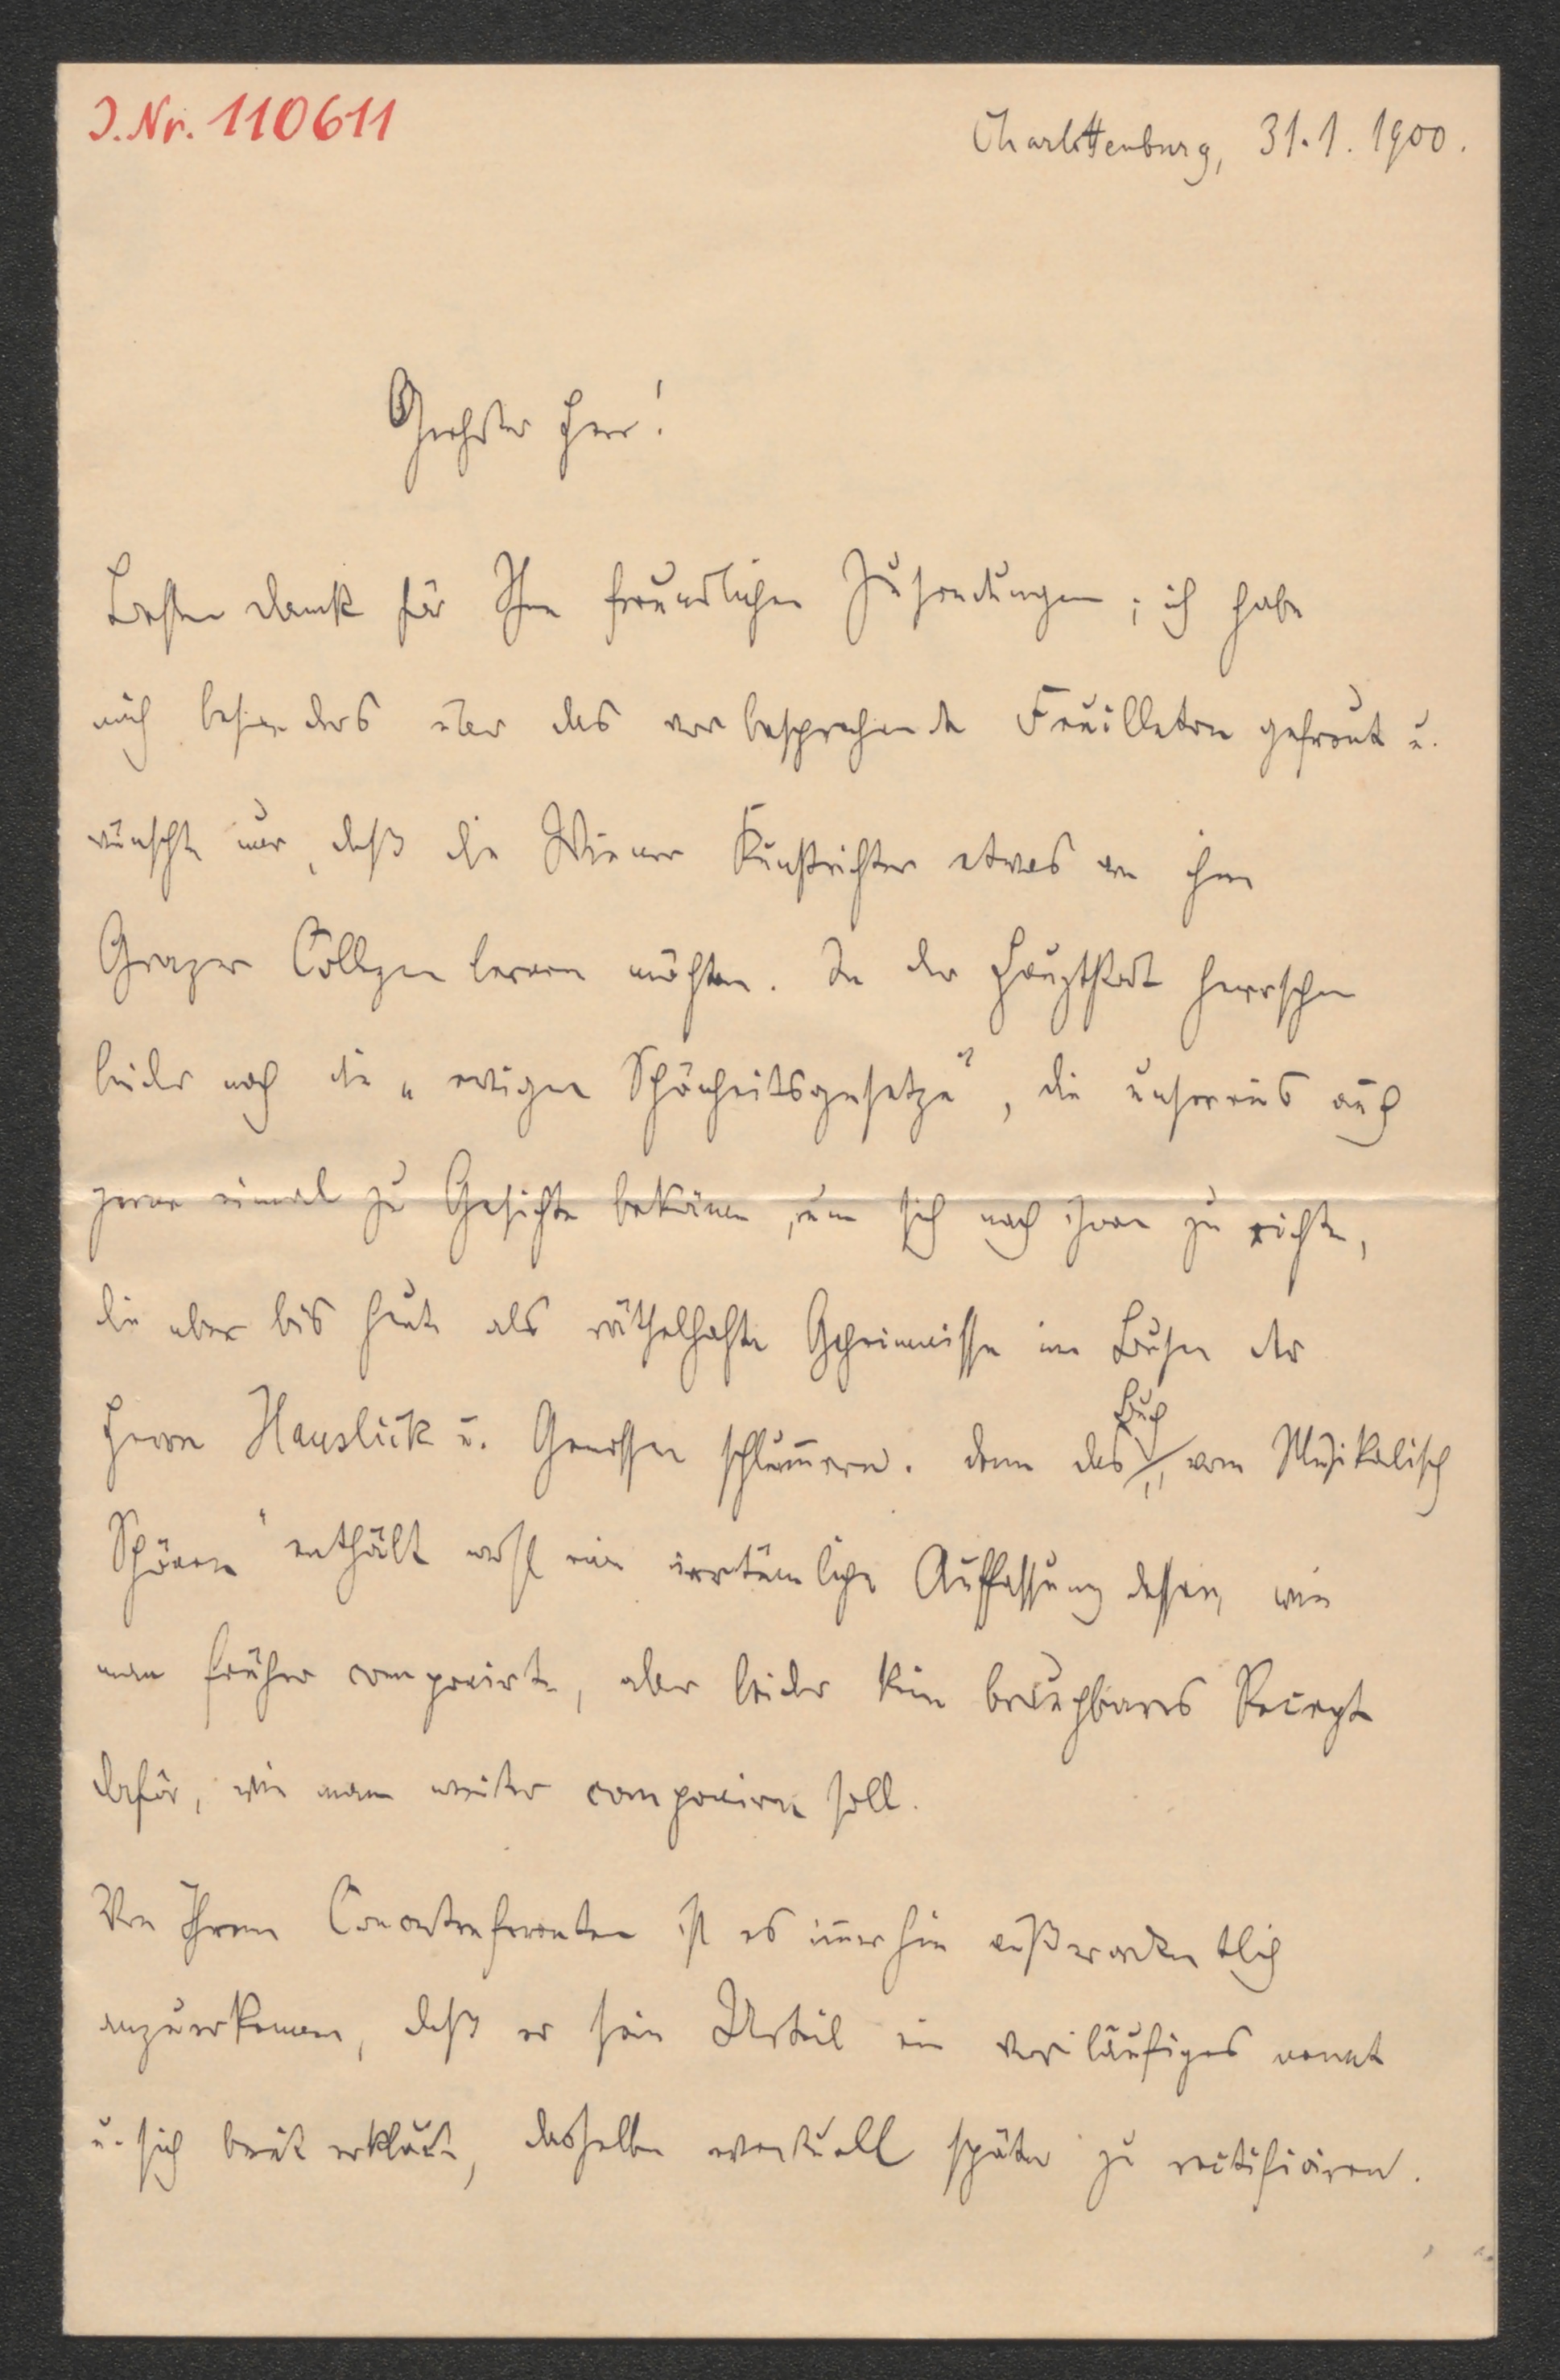 J.Nr. 110611
Charlottenburg, 31.1.1900.
Geehrter Herr!
Besten Dank für Ihre freundlichen Zusendungen; ich habe
mich besonders über das vorbesprechende Feuilleton gefreut u.
wünschte nur, daß die Wiener Kunstrichter etwas von ihren
Grazer Collegen lernen möchten. In der Hauptstadt herrschen
leider noch die „ewigen Schönheitsgesetze“, die unsereins auch
gerne einmal zu Gesichte bekäme, um sich nach ihnen zu richten,
die aber bis heute als räthselhafte Geheimnisse im Busen der
Herren Hanslick u. Genossen schlummern. Denn das Buch „vom Musikalisch
Schönen“ enthält wohl eine irrtümliche Auffassung dessen, wie
man früher componirte, aber leider kein brauchbares Recept
dafür, wie man weiter componiren soll.
Von Ihrem Concertreferenten ist es immerhin außerordentlich
anzuerkennen, daß er sein Urteil ein vorläufiges nennt
u. sich bereit erklärt, dasselbe eventuell später zu rectificiren.